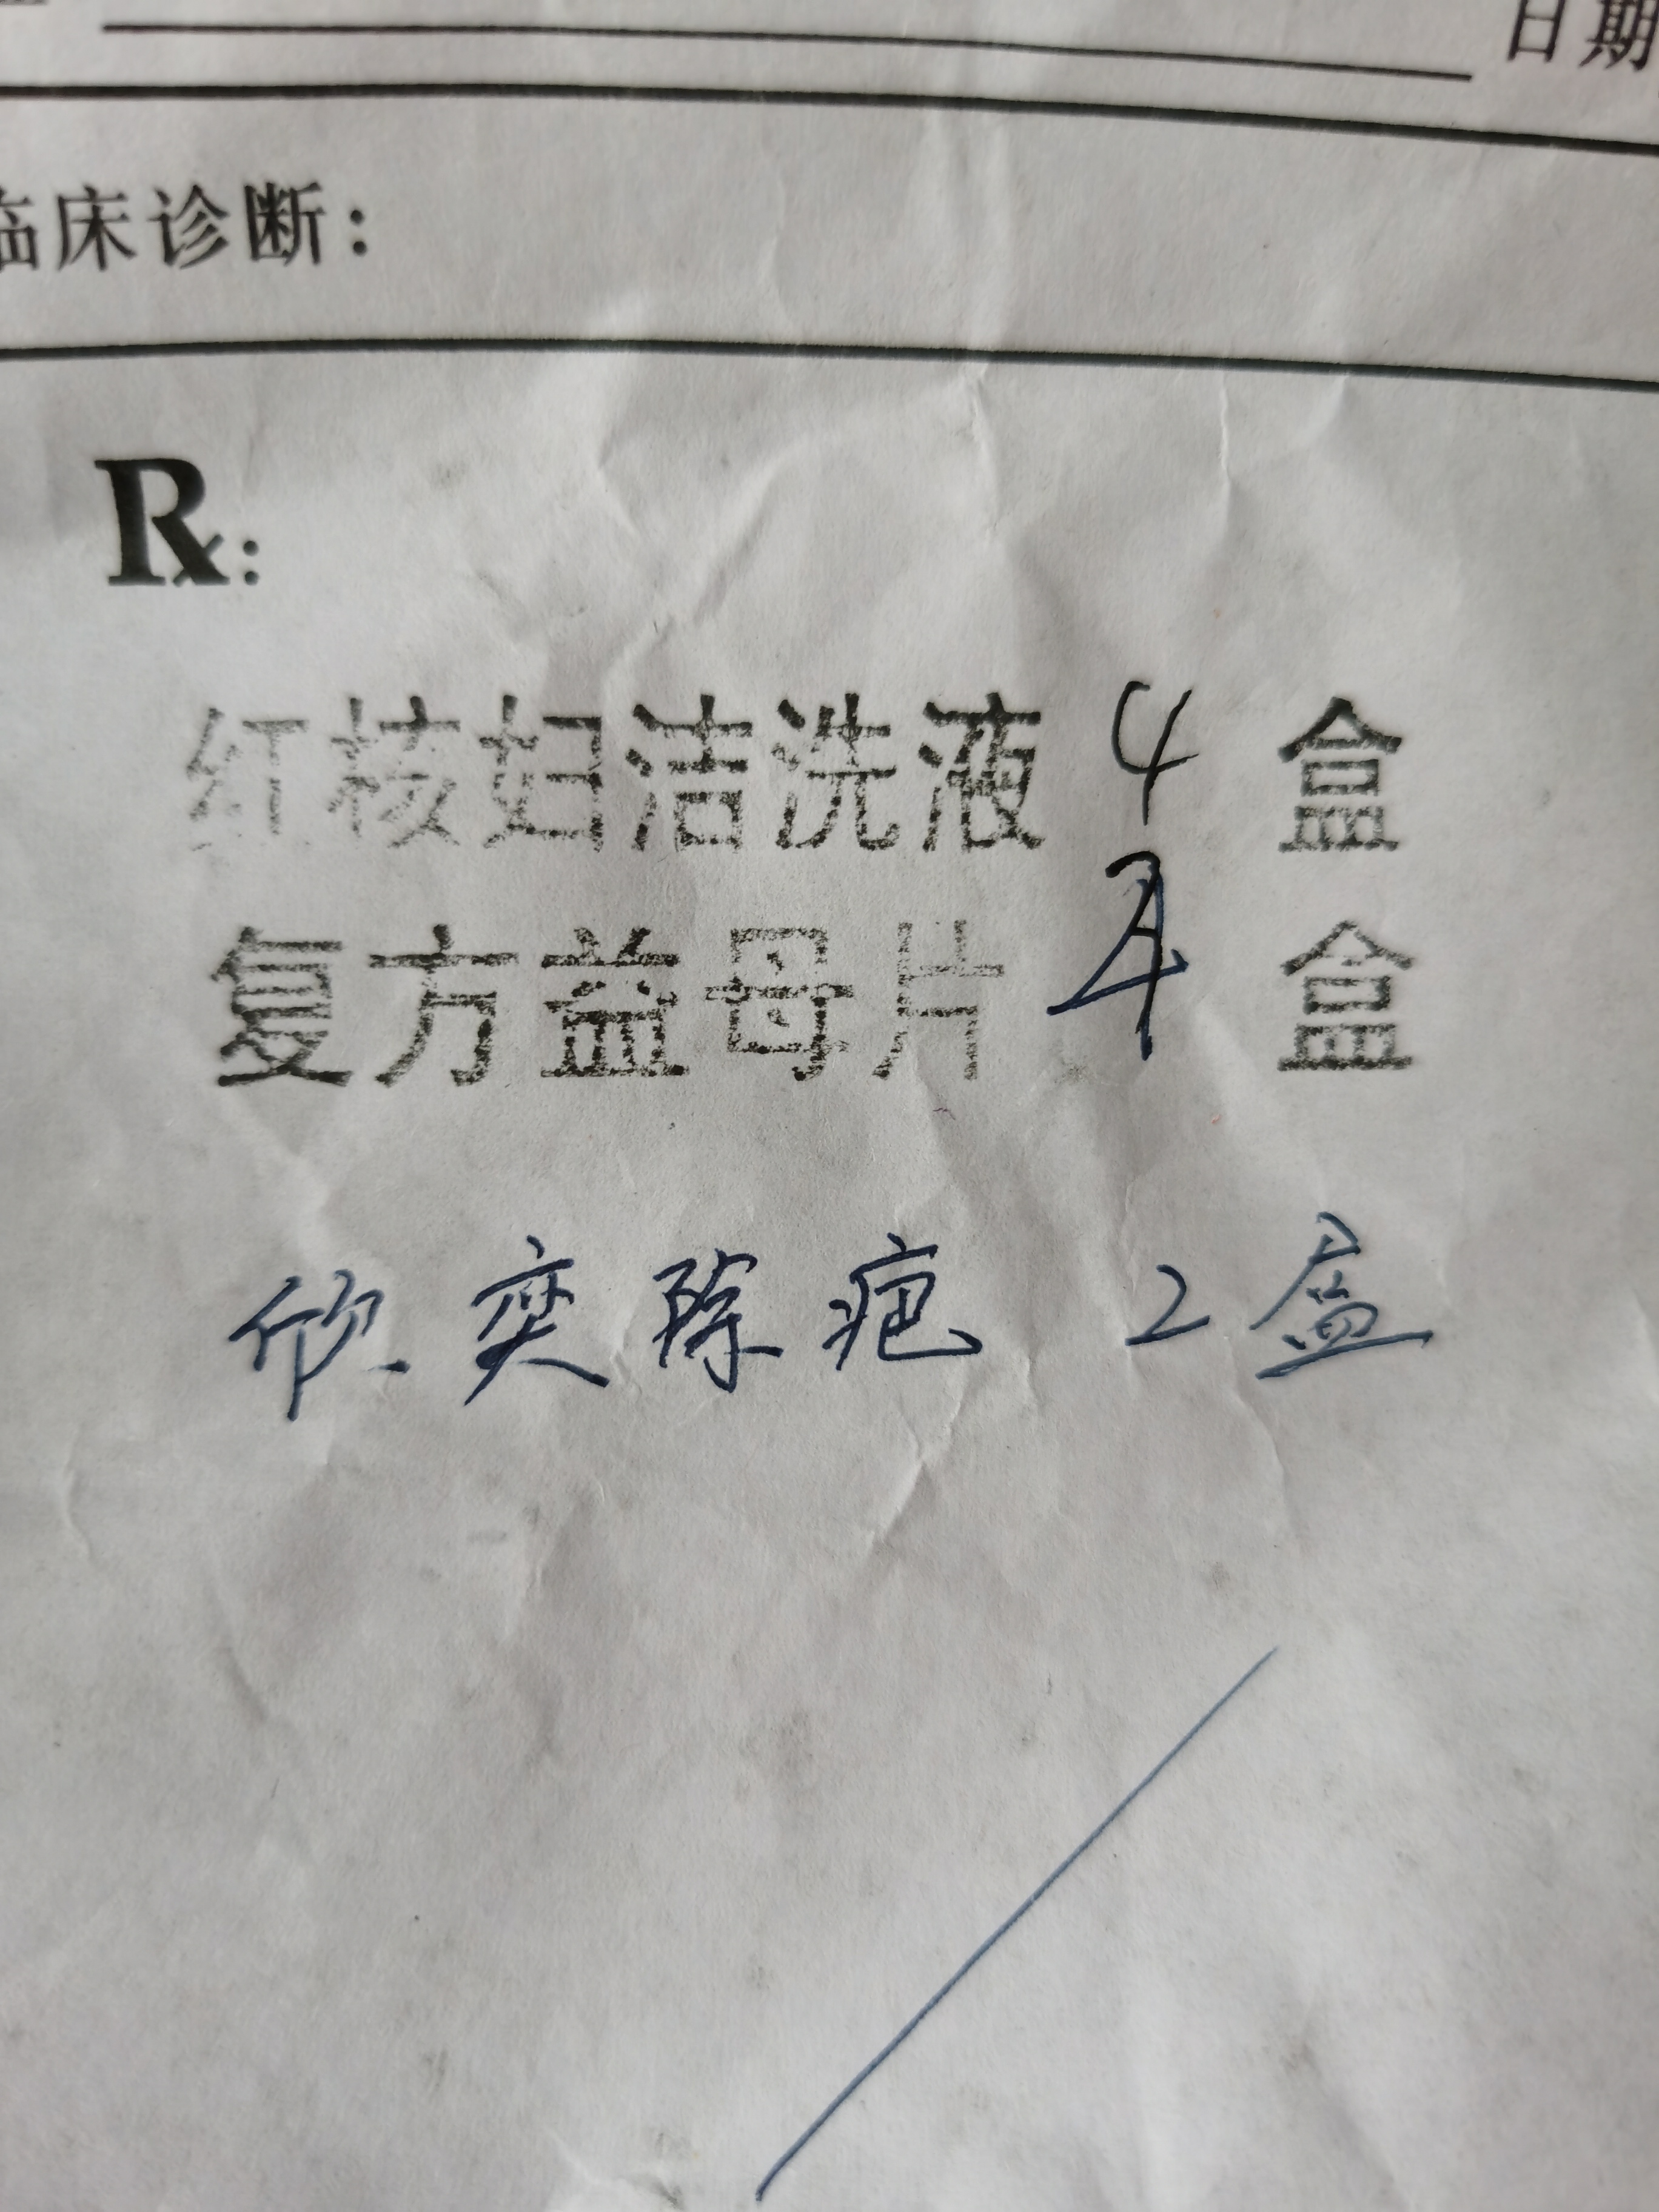 日期
临床诊断：
Rx：
红核妇洁洗液 4 盒
复方益母片 盒
欣奕除疤 2盒